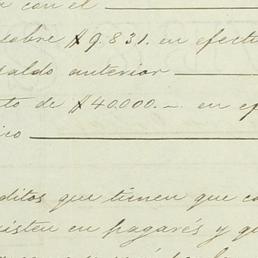 con el
sobre $9.831. en efecti
saldo anterior
to de $40.000.- en ef
ico
ditos que tienen que co
sisten en pagarés y qu